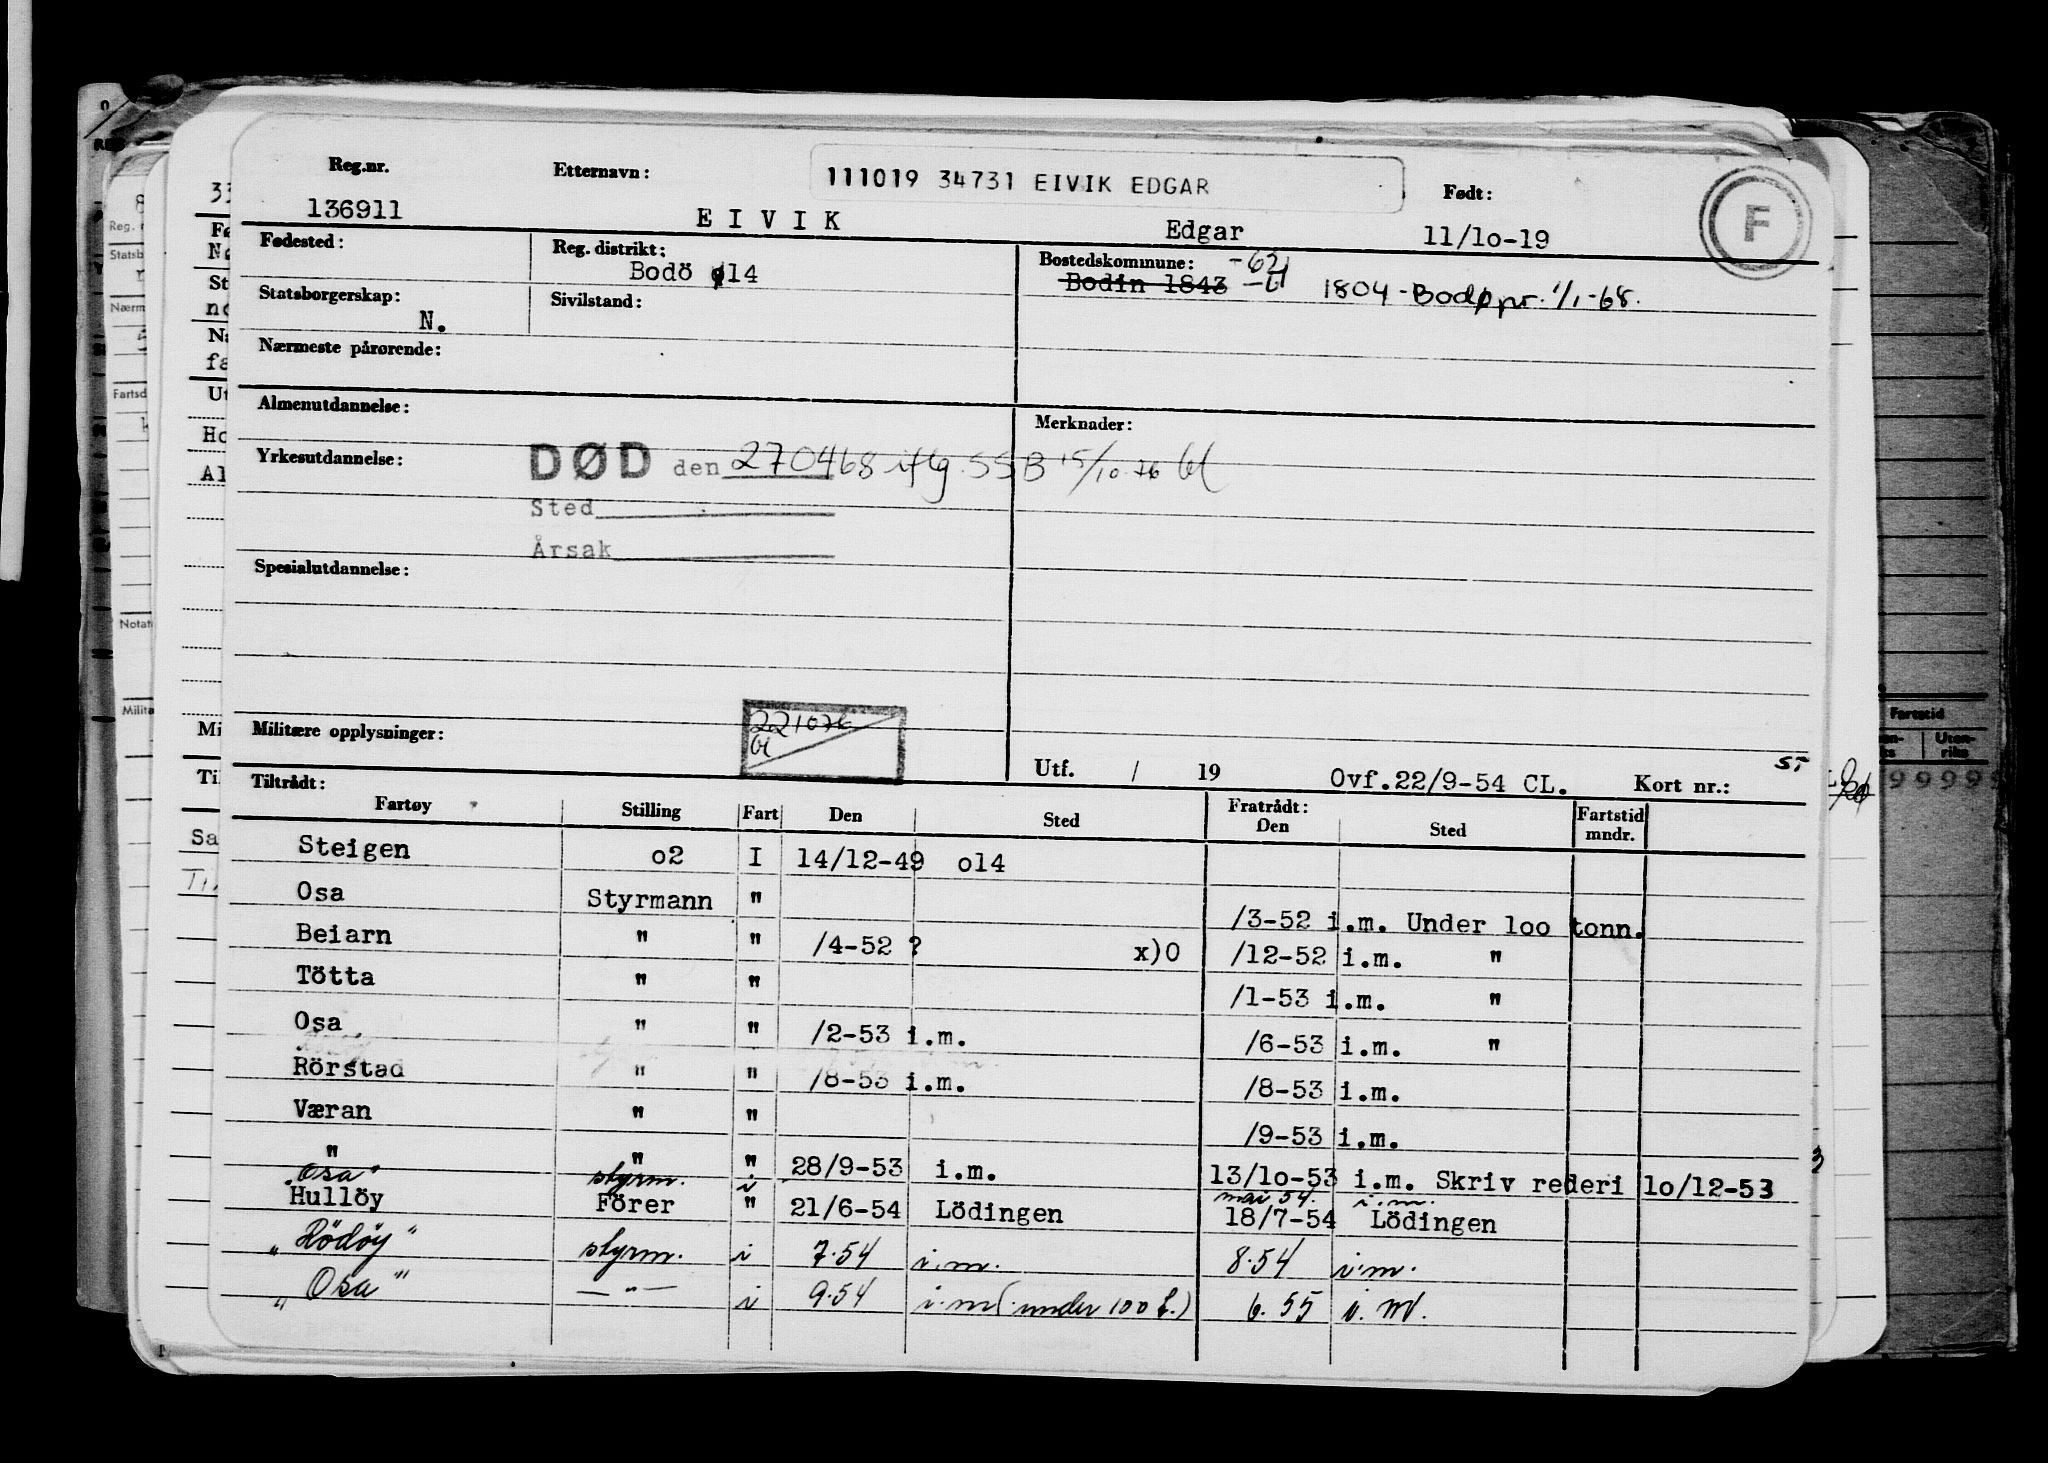 Reg.nr. Etternavn: 111019 34731 EIVIK EDGAR Født:
136911 EIVIK Edgar 11/lo-19 F
Fødested: Reg. distrikt: Bostedskommune: -62
Bodö 14 Bodin 1843 1804 - Bodø pr. 1/1-68.
Statsborgerskap: Sivilstand:
N.
Nærmeste pårørende:
Almenutdannelse: Merknader:
Yrkesutdannelse: DØD den 270468 iflg. SSB 15/10-76
Sted
Årsak
Spesialutdannelse:
221076
Militære opplysninger: Utf. / 19 Ovf.22/9-54 CL. Kort nr.: ST
Tiltrådt: Fratrådt:
Fartøy Stilling Fart Den Sted Den Sted Fartstid mndr.
Steigen o2 I 14/12-49 o14
Osa Styrmann " /3-52 i.m. Under loo tonn.
Beiarn " " /4-52 ? x)O /12-52 i.m. "
Tötta " " /1-53 i.m. "
Osa " " /2-53 i.m. /6-53 i.m. "
Rörstad " " /8-53 i.m. /8-53 i.m.
Væran " " /9-53 i.m.
" " " 28/9-53 i.m. 13/lo-53 i.m. Skriv rederi lo/12-53
"Osa" styrm. i mai 54. i.m.
Hullöy Förer " 21/6-54 Lödingen 18/7-54 Lödingen
"Rödöy" styrm. i 7.54 i.m. 8.54 i.m.
"Osa" — " — i 9.54 i.m (under 100 t.) 6.55 i.m.